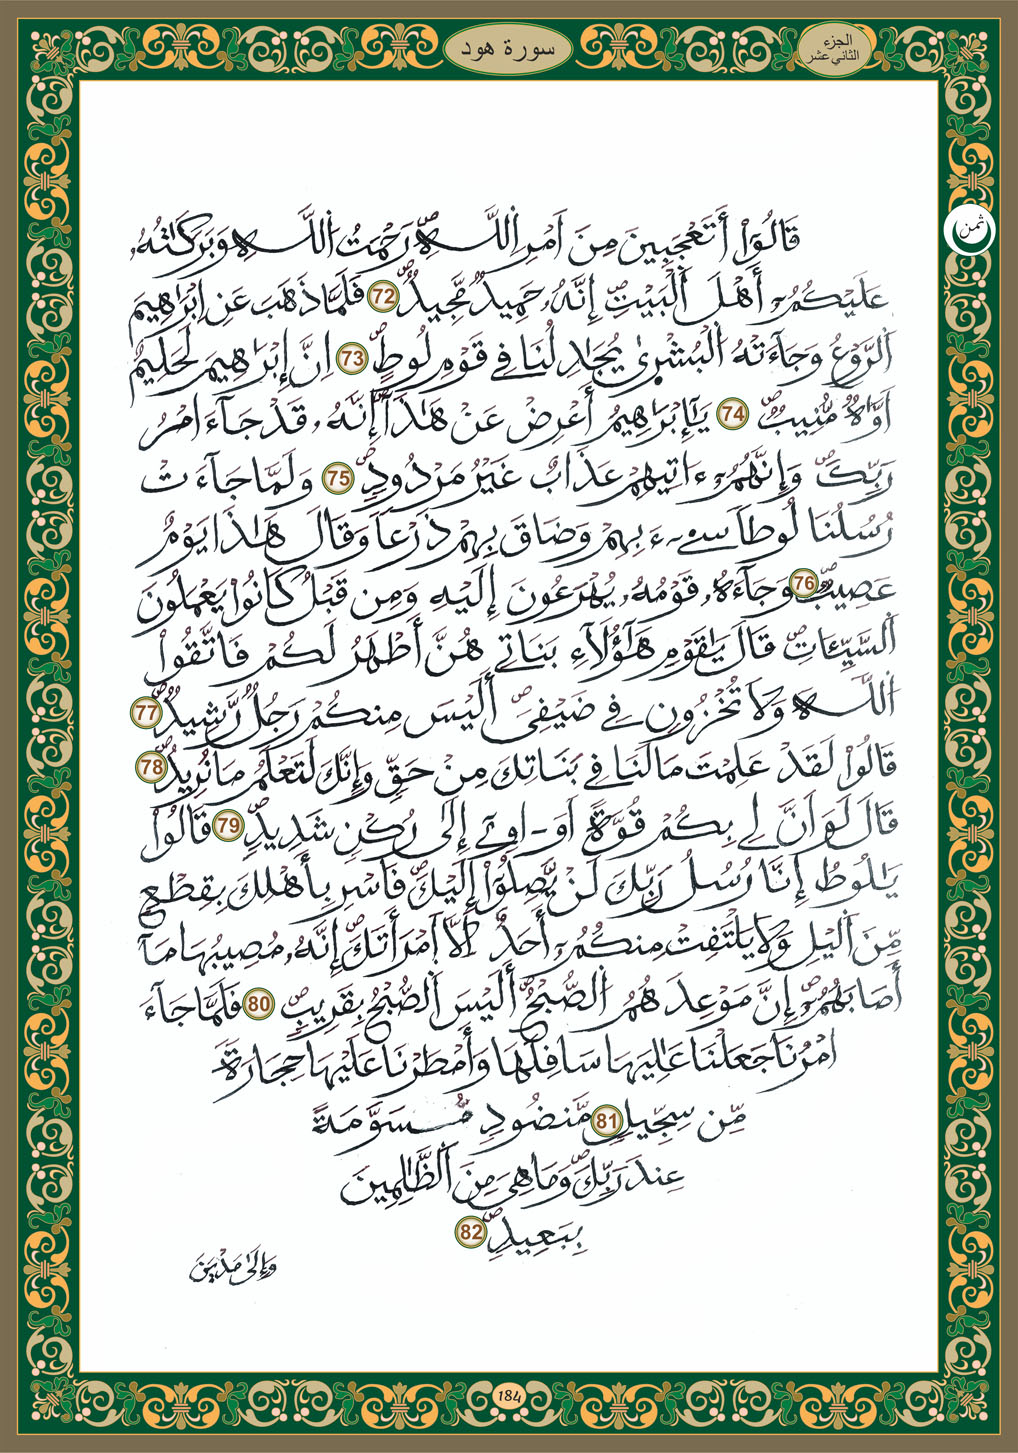 الجزء
الثاني عشر
سورة هود
ثمن
قَالُوٓاْ أَتَعْجَبِينَ مِنَ اَمْرِ اِ۬للَّهِۖ رَحْمَتُ اُ۬للَّهِ وَبَرَكَٰتُهُۥ
عَلَيْكُمُۥٓ أَهْلَ اَ۬لْبَيْتِۖ إِنَّهُۥ حَمِيدٞ مَّجِيدٞۖ 72 فَلَمَّا ذَهَبَ عَنِ اِبْرَٰهِيمَ
اَ۬لرَّوْعُ وَجَآءَتْهُ اُ۬لْبُشْر۪ىٰ يُجَٰدِلُنَا فِے قَوْمِ لُوطٍۖ 73 اِنَّ إِبْرَٰهِيمَ لَحَلِيمٌ
اَوَّٰهٞ مُّنِيبٞۖ 74 يَٰٓإِبْرَٰهِيمُ أَعْرِضْ عَنْ هَٰذَآ إِنَّهُۥ قَدْ جَآءَ امْرُ
رَبِّكَۖ وَإِنَّهُمُۥٓ ءَاتِيهِمْ عَذَابٌ غَيْرُ مَرْدُودٖۖ 75 وَلَمَّا جَآءَتْ
رُسُلُنَا لُوطاٗ سِےٓءَ بِهِمْ وَضَاقَ بِهِمْ ذَرْعاٗ وَقَالَ هَٰذَا يَوْمٌ
عَصِيبٞۖ 76 وَجَآءَهُۥ قَوْمُهُۥ يُهْرَعُونَ إِلَيْهِ وَمِن قَبْلُ كَانُواْ يَعْمَلُونَ
اَ۬لسَّيِّـَٔاتِۖ قَالَ يَٰقَوْمِ هَٰٓؤُلَآءِ بَنَاتِے هُنَّ أَطْهَرُ لَكُمْ فَاتَّقُواْ
اُ۬للَّهَ وَلَا تُخْزُونِ فِے ضَيْفِيَۖ أَلَيْسَ مِنكُمْ رَجُلٞ رَّشِيدٞۖ 77
قَالُواْ لَقَدْ عَلِمْتَ مَا لَنَا فِے بَنَاتِكَ مِنْ حَقّٖ وَإِنَّكَ لَتَعْلَمُ مَا نُرِيدُۖ 78
قَالَ لَوَ اَنَّ لِے بِكُمْ قُوَّةً اَوَ اٰوِےٓ إِلَىٰ رُكْنٖ شَدِيدٖۖ 79 قَالُواْ
يَٰلُوطُ إِنَّا رُسُلُ رَبِّكَ لَنْ يَّصِلُوٓاْ إِلَيْكَۖ فَاسْرِ بِأَهْلِكَ بِقِطْعٖ
مِّنَ اَ۬ليْلِ وَلَا يَلْتَفِتْ مِنكُمُۥٓ أَحَدٌ اِلَّا اَ۪مْرَأَتَكَۖ إِنَّهُۥ مُصِيبُهَا مَآ
أَصَابَهُمُۥٓۖ إِنَّ مَوْعِدَهُمُ اُ۬لصُّبْحُۖ أَلَيْسَ اَ۬لصُّبْحُ بِقَرِيبٖۖ 80 فَلَمَّا جَآءَ
امْرُنَا جَعَلْنَا عَٰلِيَهَا سَافِلَهَا وَأَمْطَرْنَا عَلَيْهَا حِجَارَةٗ
مِّن سِجِّيلٖ 81 مَّنضُودٖ مُّسَوَّمَةً
عِندَ رَبِّكَۖ وَمَا هِيَ مِنَ اَ۬لظَّٰلِمِينَ
بِبَعِيدٖۖ 82
وَإِلَىٰ مَدْيَنَ
184